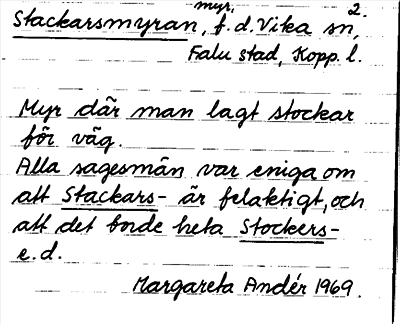 myr. 2.
Stackarsmyran, f.d. Vika sn,
Falu stad, Kopp. l.
Myr där man lagt stockar
för väg.
Alla sagesmän var eniga om
att Stackars- är felaktigt, och
att det borde heta Stockers-
e.d.
Margareta Andér 1969.